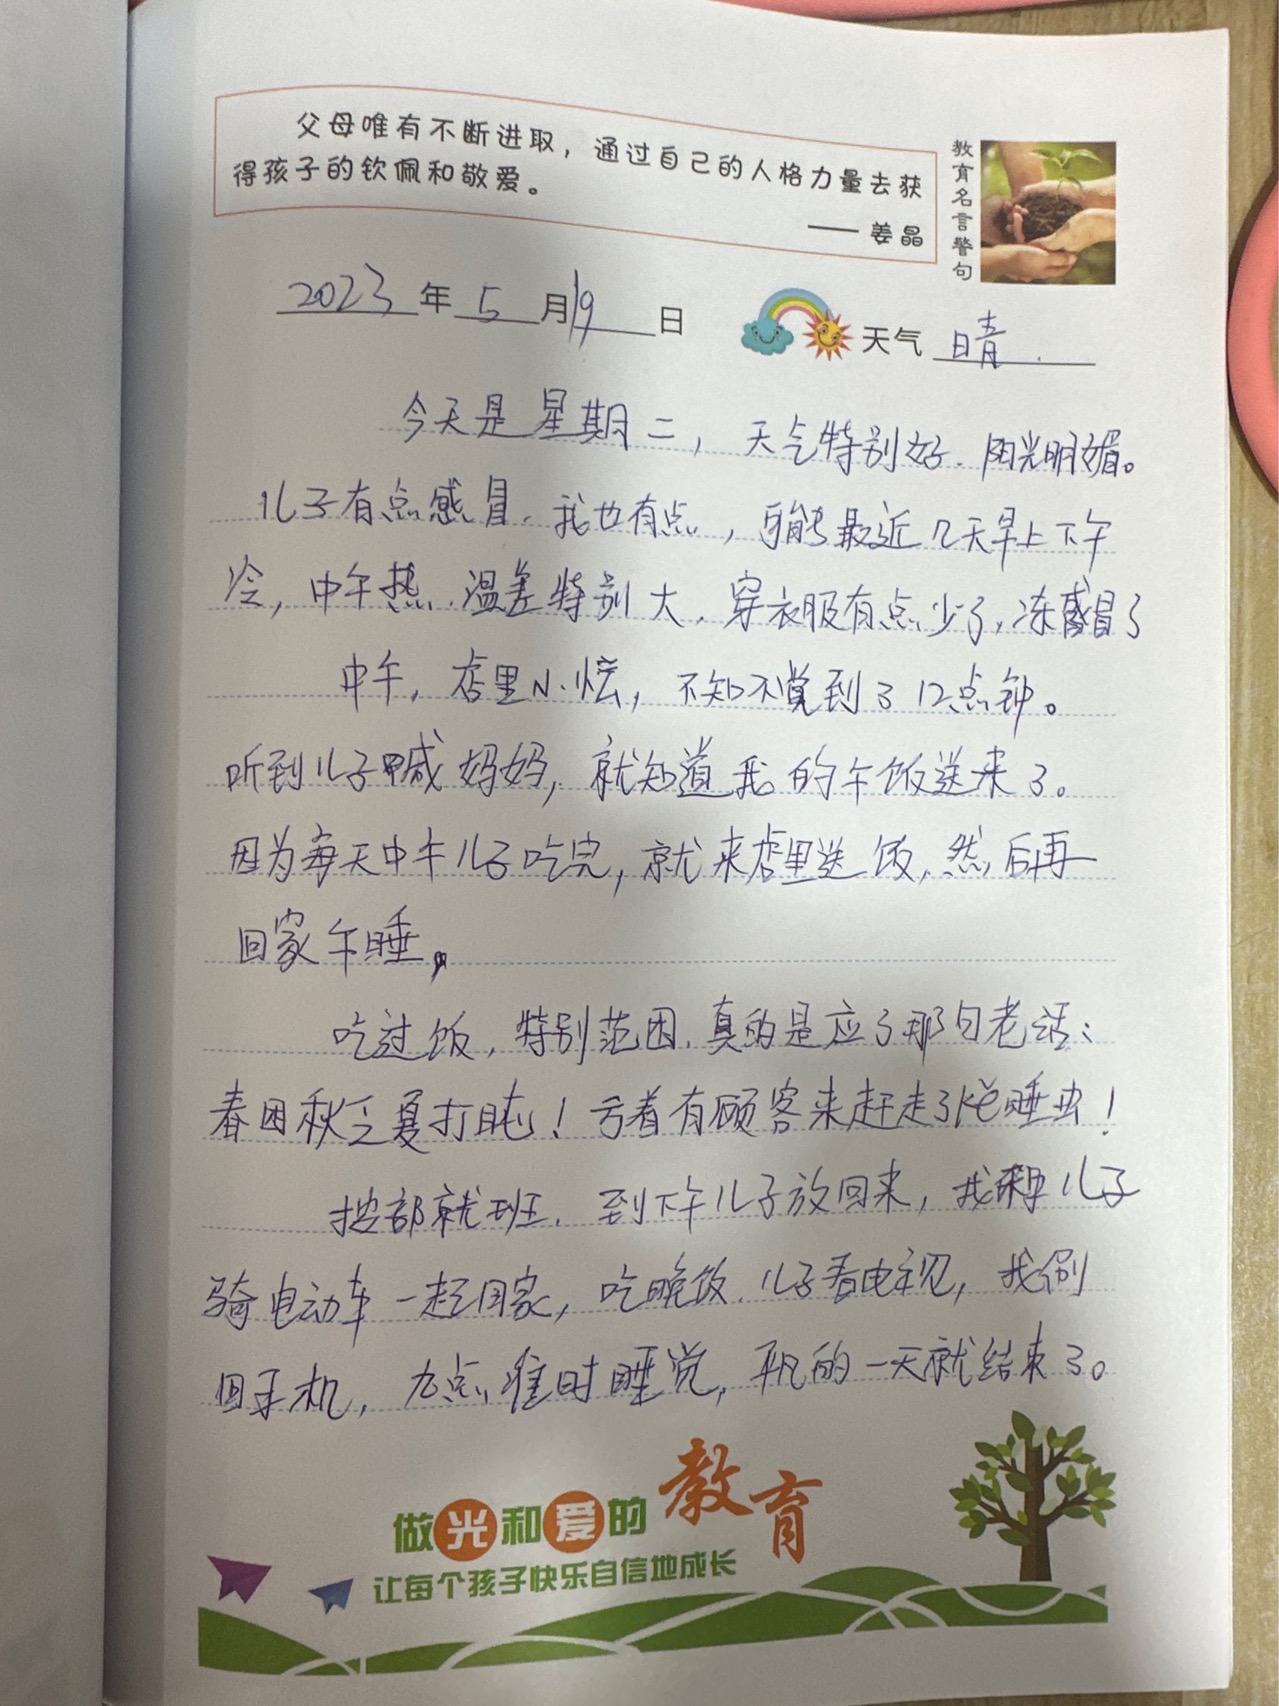 父母唯有不断进取，通过自己的人格力量去获
得孩子的钦佩和敬爱。
—— 姜晶
教育名言警句
2023年5月19日 天气 晴.
今天是星期二，天气特别好.阳光明媚。
儿子有点感冒.我也有点，可能最近几天早上下午
冷，中午热.温差特别大.穿衣服有点少了,冻感冒了
中午，店里小忙，不知不觉到了12点钟。
听到儿子喊妈妈，就知道我的午饭送来了。
因为每天中午儿子吃完，就来店里送饭,然后再
回家午睡。
吃过饭，特别范困.真的是应了那句老话：
春困秋乏夏打盹！亏着有顾客来赶走了瞌睡虫！
按部就班.到下午儿子放回来，我和儿子
骑电动车一起回家，吃晚饭.儿子看电视，我刷
回手机，九点准时睡觉，平凡的一天就结束了。
做光和爱的教育
让每个孩子快乐自信地成长